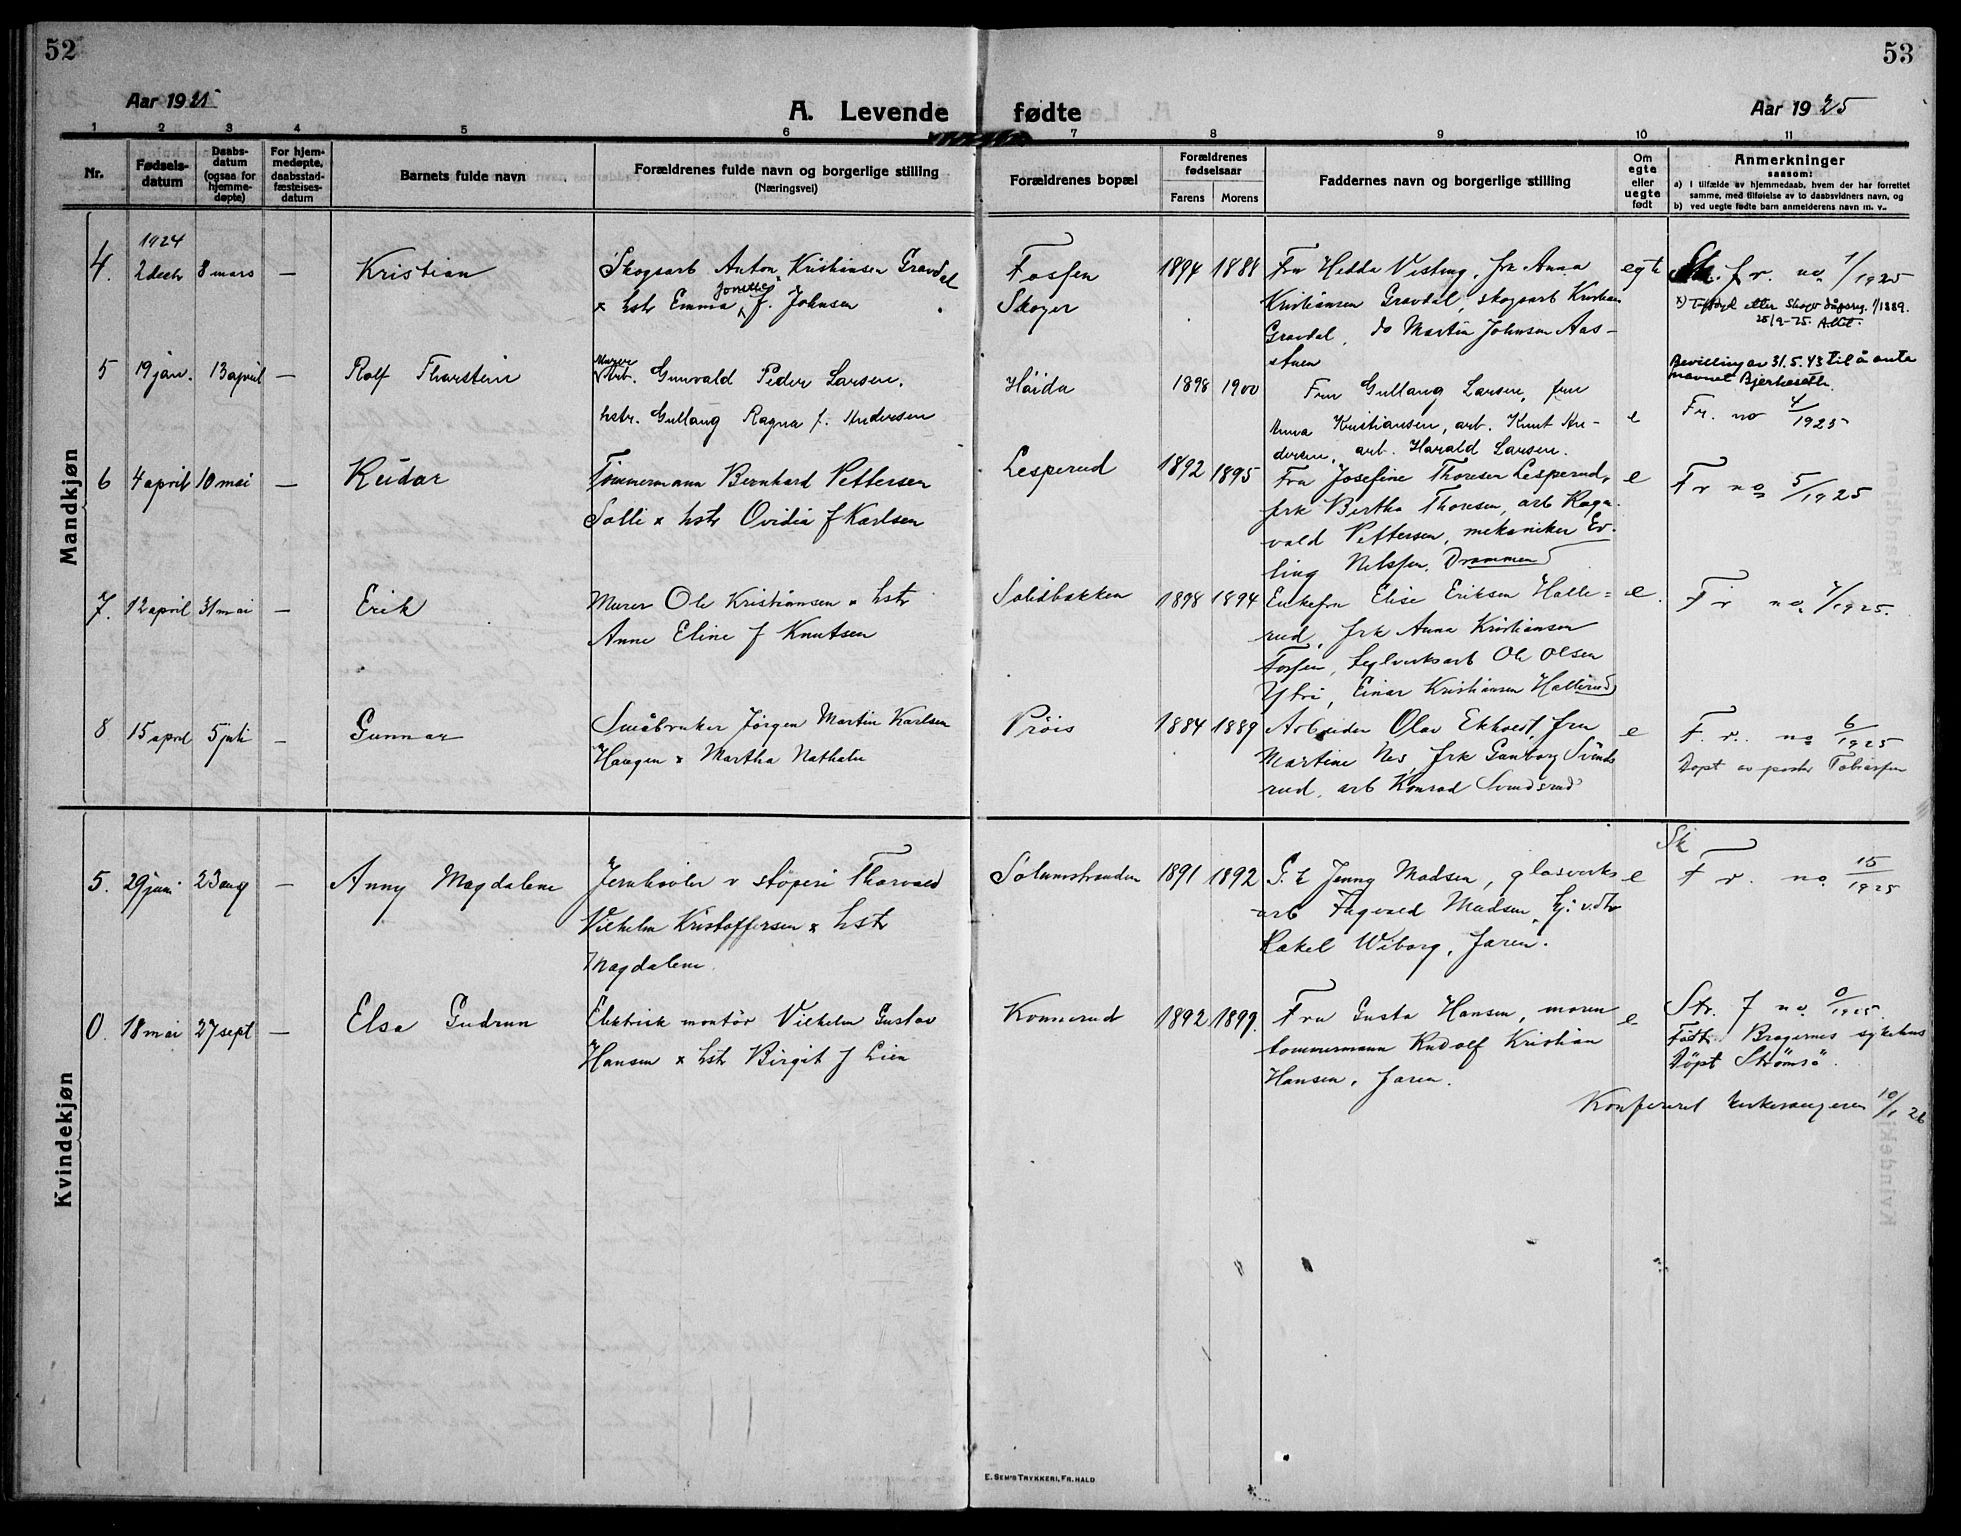 52
53
Aar 1925
A. Levende fødte
Aar 1925
1 2 3 4 5 6 7 8 9 10 11
Nr.
Fødsels-
datum
Daabs-
datum
(ogsaa for
hjemme-
døpte)
For hjem-
medøpte,
daabsstad-
fæstelses-
datum
Barnets fulde navn
Forældrenes fulde navn og borgerlige stilling
(Næringsvei)
Forældrenes bopæl
Forældrenes
fødselsaar
Farens Morens
Faddernes navn og borgerlige stilling
Om
egte
eller
uegte
født
Anmerkninger
saasom:
a) I tilfælde av hjemmedaab, hvem der har forrettet
samme, med tilføielse av to daabsvidners navn, og
b) ved uegte fødte barn anmelderens navn m. v.
Mandkjøn
1924
4. 2 decbr 8 mars — Kristian
Skogsarb Anton Kristiansen Gravdal
Jonette
x hstr Emma f. Johnsen
Fosfen
Skoger
1894 1888
Fru Hedda Visting, frk Anna
Kristiansen Gravdal, skogsarb Kristian
Gravdal, do Martin Johnsen Aas-
stuen
egte
Sk. f r. no 1/1925
x) Tilföyd etter Skoger dåpsreg. 1/1889.
25/9-75.
5 19 jan. 13 april — Rolf Tharstein
Murer
Arb. Gunvald Peder Larsen,
hstr. Gullaug Ragna f. Andersen
Höida
1898 1900
Fru Gullaug Larsen, frue
Anna Kristiansen, arb. Knut An-
dersen, arb. Harald Larsen.
e
Bevilling av 31.5.43 til å anta
navnet Bjerkeseth.
Fr. no 4/1925
6 4 april 10 mai — Reidar
Tømmermann Bernhard Pettersen
Solli x hstr Ovidia f Karlsen
Lesperud
1892 1895
Fru Josefine Thoresen Lesperud,
frk Bertha Thoresen, arb Ragn-
vald Pettersen, mekaniker Er-
ling Nilssen, Drammen
e
Fr no 5/1925
7. 12 april 31 mai — Erik
Murer Ole Kristiansen x hstr
Anne Eline f Knutsen
Solidbakken
1898 1894
Enkefru Elise Eriksen Halle-
rud, frk Anna Kristiansen
Fosfen, teglverksarb Ole Olsen
Ytri, Einar Kristiansen Hallerud
e.
Fr no 7/1925.
8 15 april 5 juli — Gunnar
Småbruker Jørgen Martin Karlsen
Haugen x Martha Nathalie
Pröis
1884 1889
Arbeider Olav Ekholdt, fru
Martine Nes, frk Gunborg Svends
rud, arb Konrad Svendsrud
e
F. r. no 6/1925
Döpt av pastor Tobiassen
Kvindekjøn
5. 29 juni 23 aug — Anny Magdalene
Jernhövler v støperi Thorvald
Vilhelm Kristoffersen x hstr
Magdalene
Solumstranden
1891 1892
G. k Jenny Madsen, glasverks
arb Fagvald Madsen,
Rakel Wiborg, Jaren.
e
Sk
F r. no 15/1925
0. 18 mai 27 sept — Elsa Gudrun
Elektrisk montör Vilhelm Gustav
Hansen x hstr Birgit f Lien
Konnerud
1892 1899.
Fru Gusta Hansen, moren
tømmermann Rudolf Kristian
Hansen, Jaren.
e
Str. f no 0/1925.
Født Bragernes sykehus
Döpt Strömsö.
Konfereret kirkesangeren 10/1 26
E. Sem's Trykkeri, Fr.hald